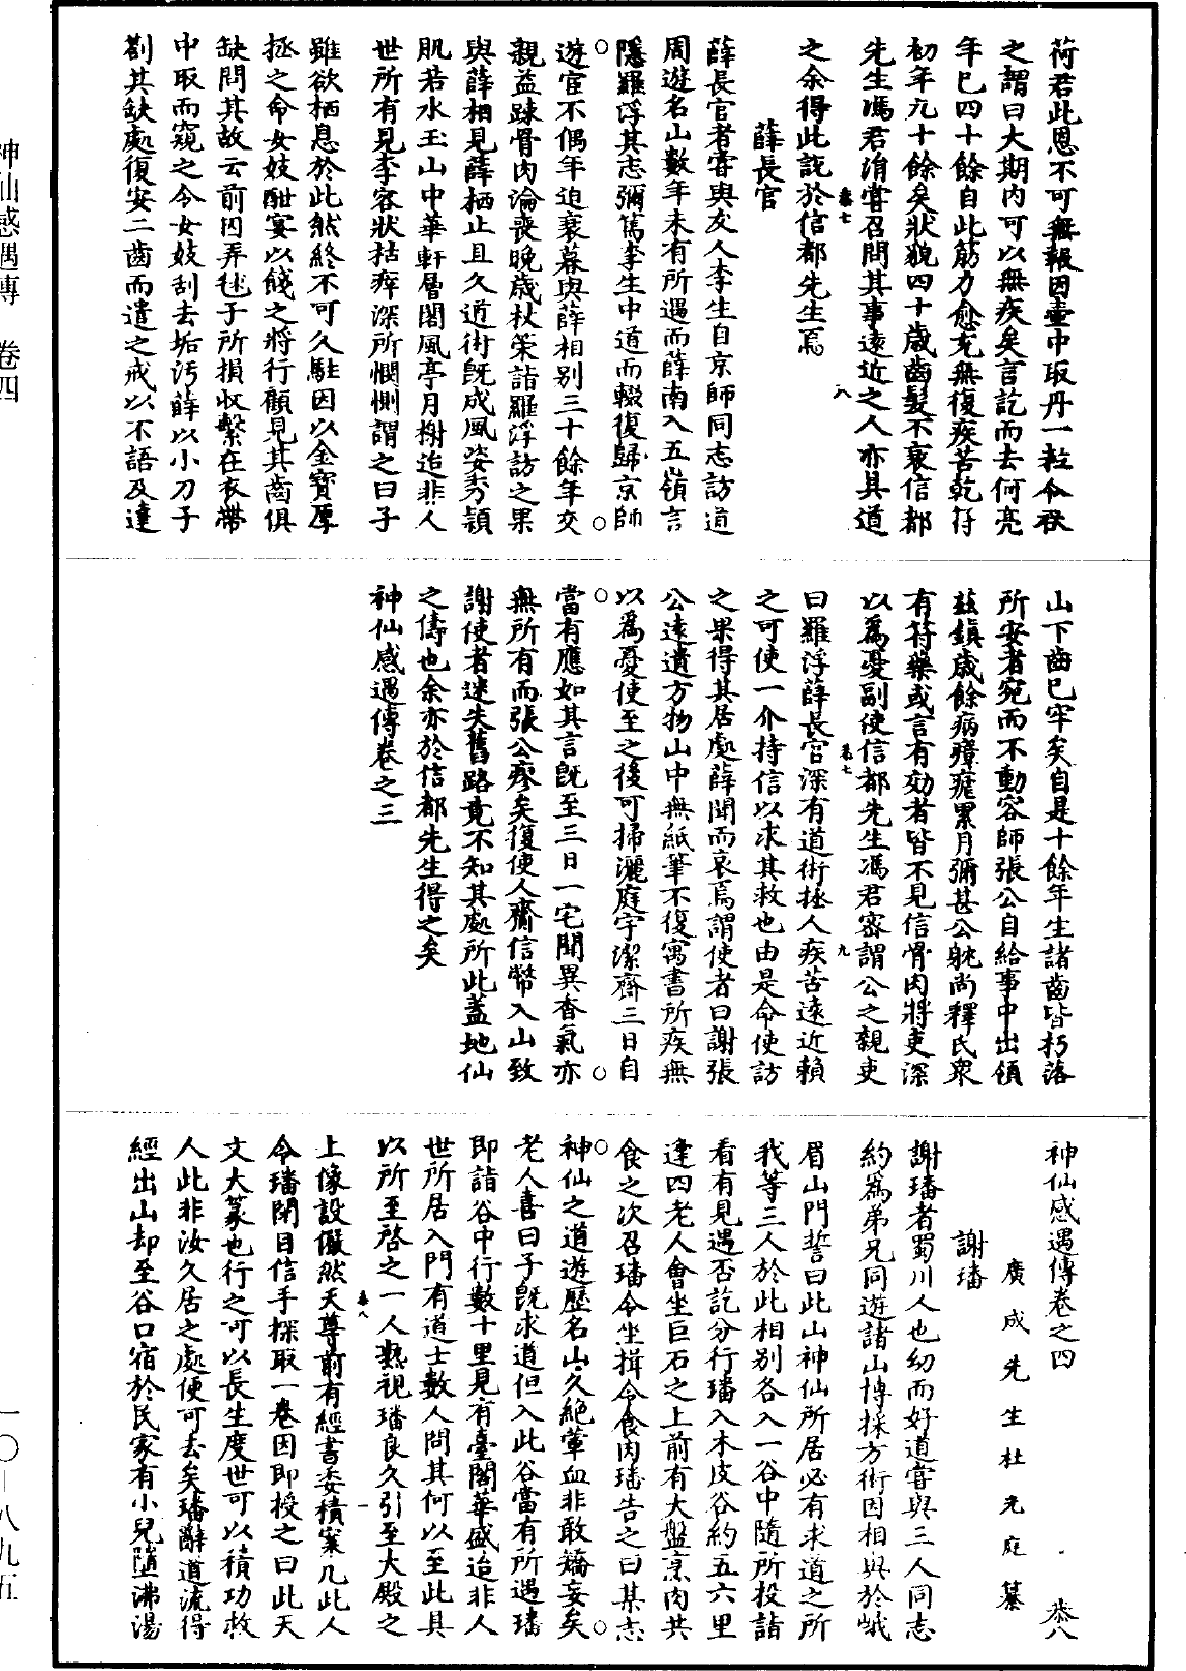 荷君此恩不可無報因壺中取丹一粒令袨
之謂曰大期内可以無疾矣言訖而去何亮
年已四十餘自此筋力愈充無復疾苦乾符
初年九十餘矣狀貌四十歲齒髮不衰信都
先生馮君涓嘗召問其事遠近之人亦具道
恭七
八
之余得此說於信都先生焉
薛長官
薛長官者嘗與友人李生自京師同志訪道
周遊名山數年未有所遇而薛南入五嶺言
隱羅浮其志彌篤李生中道而輟復歸京師
遊宦不偶年迫衰暮與薛相別三十餘年交
親益踈骨肉淪喪晚歲杖策詣羅浮訪之果
與薛相見薛栖止且久道術旣成風姿秀穎
肌若水玉山中華軒層閣風亭月榭迨非人
世所有見李容狀枯瘁深所憫惻謂之曰子
雖欲栖息於此然終不可久駐因以金寶厚
拯之命女妓酣宴以餞之將行顧見其齒俱
缺問其故云前因弄毬子所損收繫在衣帶
中取而窺之令女妓刮去垢污薛以小刀子
劄其缺處復安二齒而遣之戒以不語及達
山下齒已牢矣自是十餘年生諸齒皆朽落
所安者宛而不動容師張公自給事中出領
兹鎮歲餘病瘴瘧累月彌甚公躭尚釋氏衆
有符藥或言有効者皆不見信骨肉將吏深
以爲憂副使信都先生馮君密謂公之親吏
恭七
九
曰羅浮薛長官深有道術拯人疾苦遠近賴
之可使一介持信以求其救也由是命使訪
之果得其居處薛聞而哀焉謂使者曰謝張
公遠遺方物山中無紙筆不復寓書所疾無
以爲憂使至之後可掃灑庭宇潔齋三日自
當有應如其言旣至三日一宅聞異香氣亦
無所有而張公瘳矣復使人齎信幣入山致
謝使者迷失舊路竟不知其處所此蓋地仙
之儔也余亦於信都先生得之矣
神仙感遇傳卷之三
神仙感遇傳卷之四
恭八
廣成先生杜光庭纂
謝璠
謝璠者蜀川人也幼而好道嘗與三人同志
約爲弟兄同遊諸山博採方術因相與於峨
眉山門誓曰此山神仙所居必有求道之所
我等三人於此相別各入一谷中隨所投詣
看有見遇否訖分行璠入木皮谷約五六里
逢四老人會坐巨石之上前有大盤烹肉共
食之次召璠令坐揖令食肉璠告之曰某志
神仙之道遊歷名山久絶葷血非敢矯妄矣
老人喜曰子旣求道但入此谷當有所遇璠
即詣谷中行數十里見有臺閣華盛迨非人
世所居入門有道士數人問其何以至此具
以所至啓之一人熟視璠良久引至大殿之
恭八
一
上像設儼然天尊前有經書委積案几此人
令璠閉目信手探取一卷因即授之曰此天
文大篆也行之可以長生度世可以積功救
人此非汝久居之處便可去矣璠辭道流得
經出山却至谷口宿於民家有小兒墮沸湯
神仙感遇傳　卷四
一〇—八九五